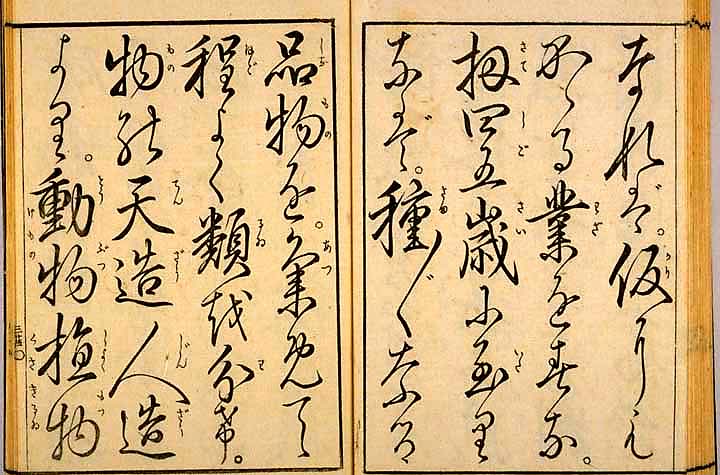 なれバ。仮りにも
かゝる業をすな。
扨四五歳に至り
なバ。種〴〵なる
品物を。集めて
程よく類を分け。
物の天造人造
より。動物植物